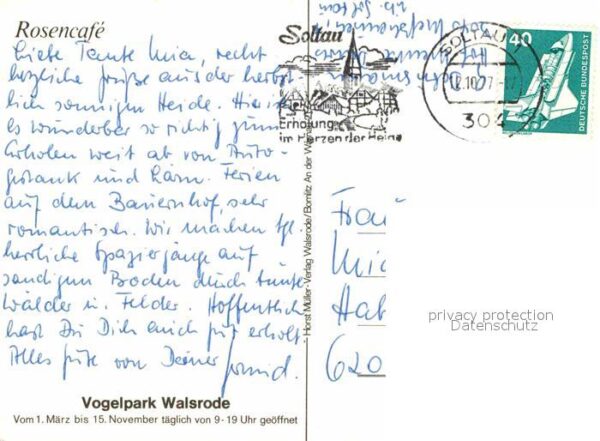 Rosencafé
Liebe Tante Mia, recht
herzliche Grüße aus der herbst-
lich sonnigen Heide. Hier ist
es wunderbar so richtig zum
Erholen weit ab von Auto-
gestank und Lärm. Ferien
auf dem Bauernhof, sehr
romantisch. Wir machen tgl.
herrliche Spaziergänge auf
sandigen Boden durch bunte
Wälder u. Felder. Hoffentlich
hast Du Dich auch gut erholt
Alles Gute von Deiner
Vogelpark Walsrode
Vom 1. März bis 15. November täglich von 9-19 Uhr geöffnet
Horst Müller-Verlag Walsrode/Bomlitz An der W
Soltau
Erholung
im Herzen der Heide
SOLTAU
12.10.77-17
304
40
DEUTSCHE BUNDESPOST
z.b. Soltau
Frau
Mia
Hab
620
privacy protection
Datenschutz